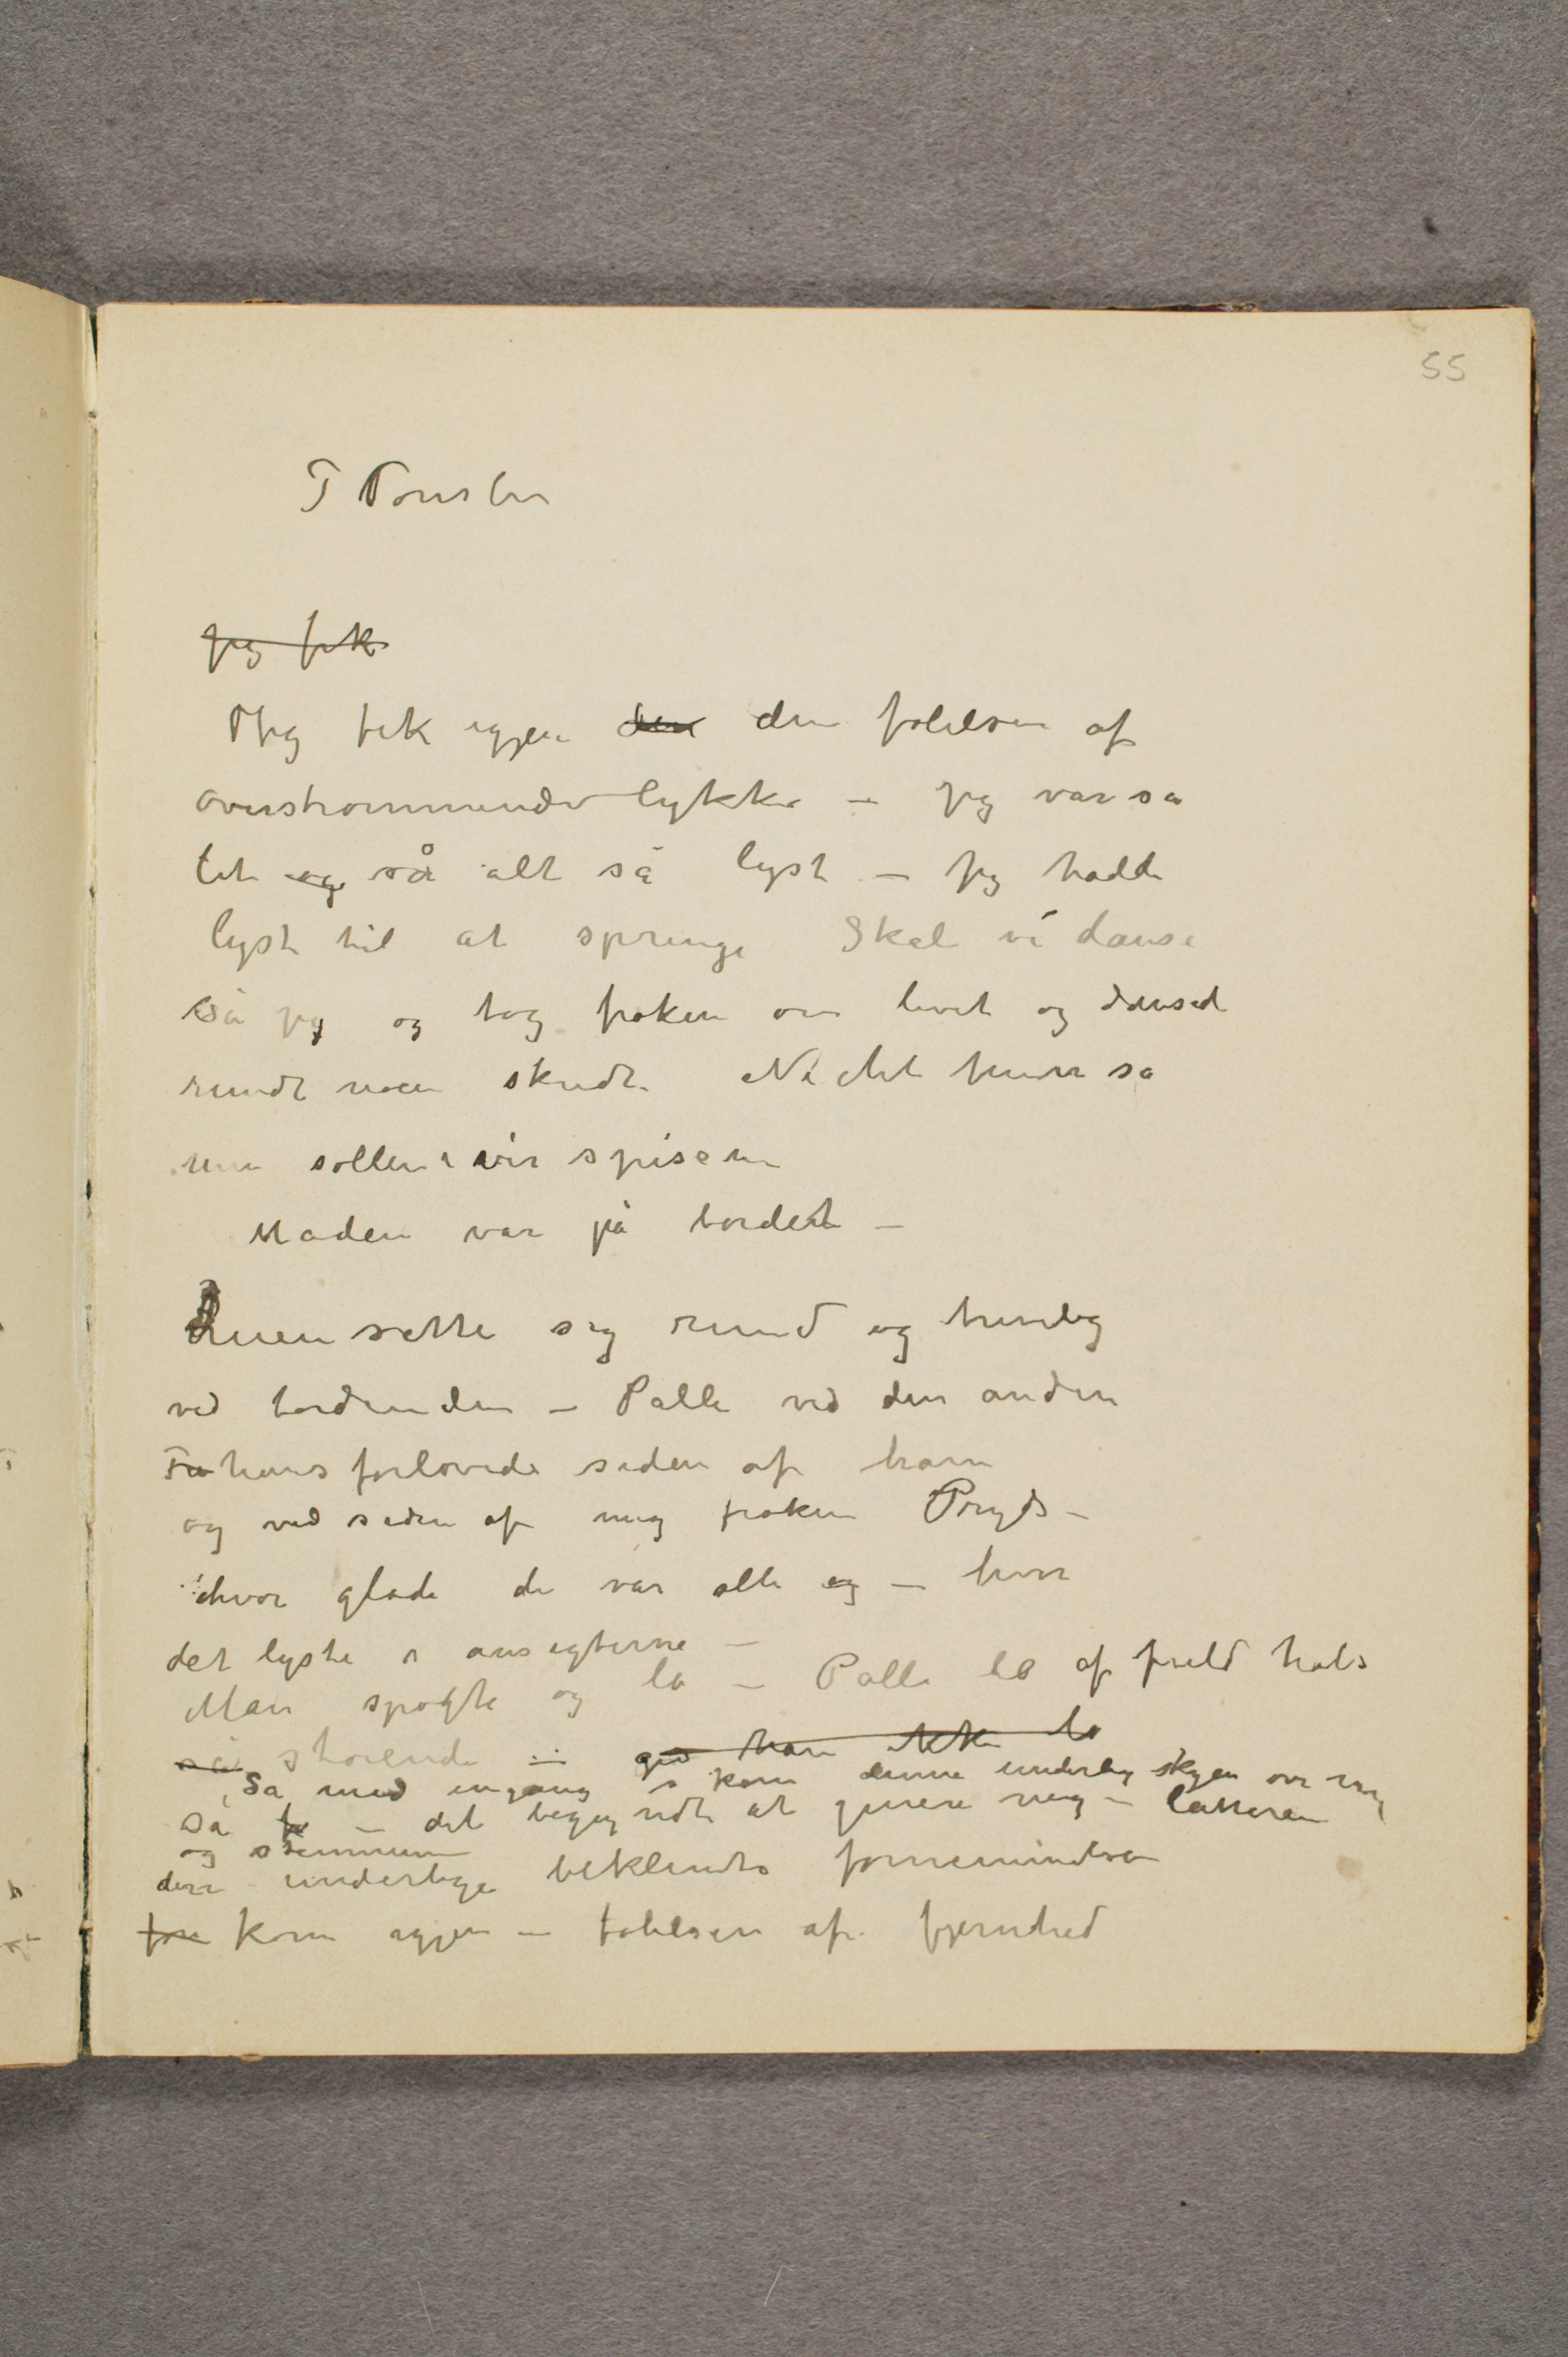 55
I Tonsber
Jeg fik
Jeg fik igjen den den følelsen af
overstrommende lykke – jeg var så
let og så alt så lyst – Jeg hadde
lyst til at springe Skal vi danse
sa jeg og tog frøken om livet og dansed
rundt noen skridt. Nichht hun sa
nun sollen wir spisen
Maden var på bordet –
satte sig rund og hyndig
ved bordenden – Palle ved den anden
Fr hans forlovede siden af ham
og ved siden af mig frøken Pryds –
hvor glade de var alle og – hvor
det lyste i ansigterne –
Man spøgte og lo – Palle lo af fuld hals
så storende – gid han ikke lo
Så med engang så kom denne underlig skyen over mig
så f – det begynte at genere mig – latteren
og stemmen
den underlige beklemte fornemmelse
for kom igjen – følelsen af fjernhed